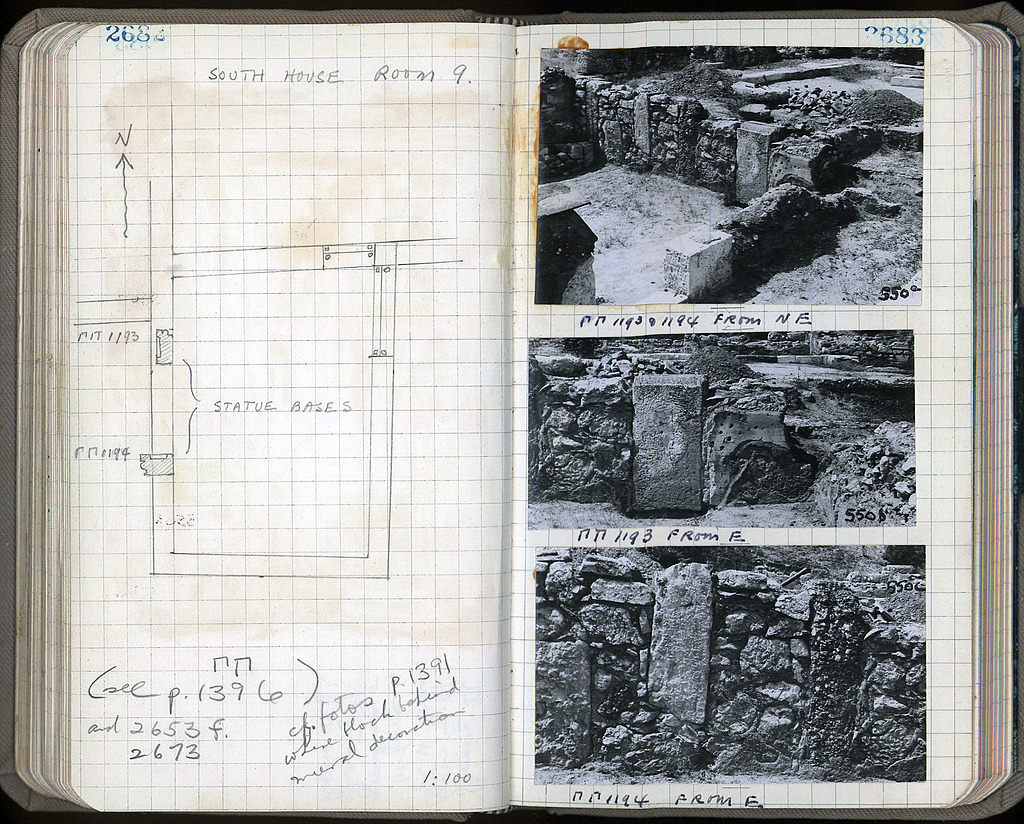 2682
SOUTH HOUSE ROOM 9.
N
ΠΠ 1193
STATUE BASES
ΠΠ 1194
ΠΠ
(see p. 1396)
and 2653 f.
2673
cf. fotos p. 1391
where block behind
mural decoration
1:100
2683
550a
ΠΠ 1193 & 1194 FROM NE
550b
ΠΠ 1193 FROM E
550c
ΠΠ 1194 FROM E.